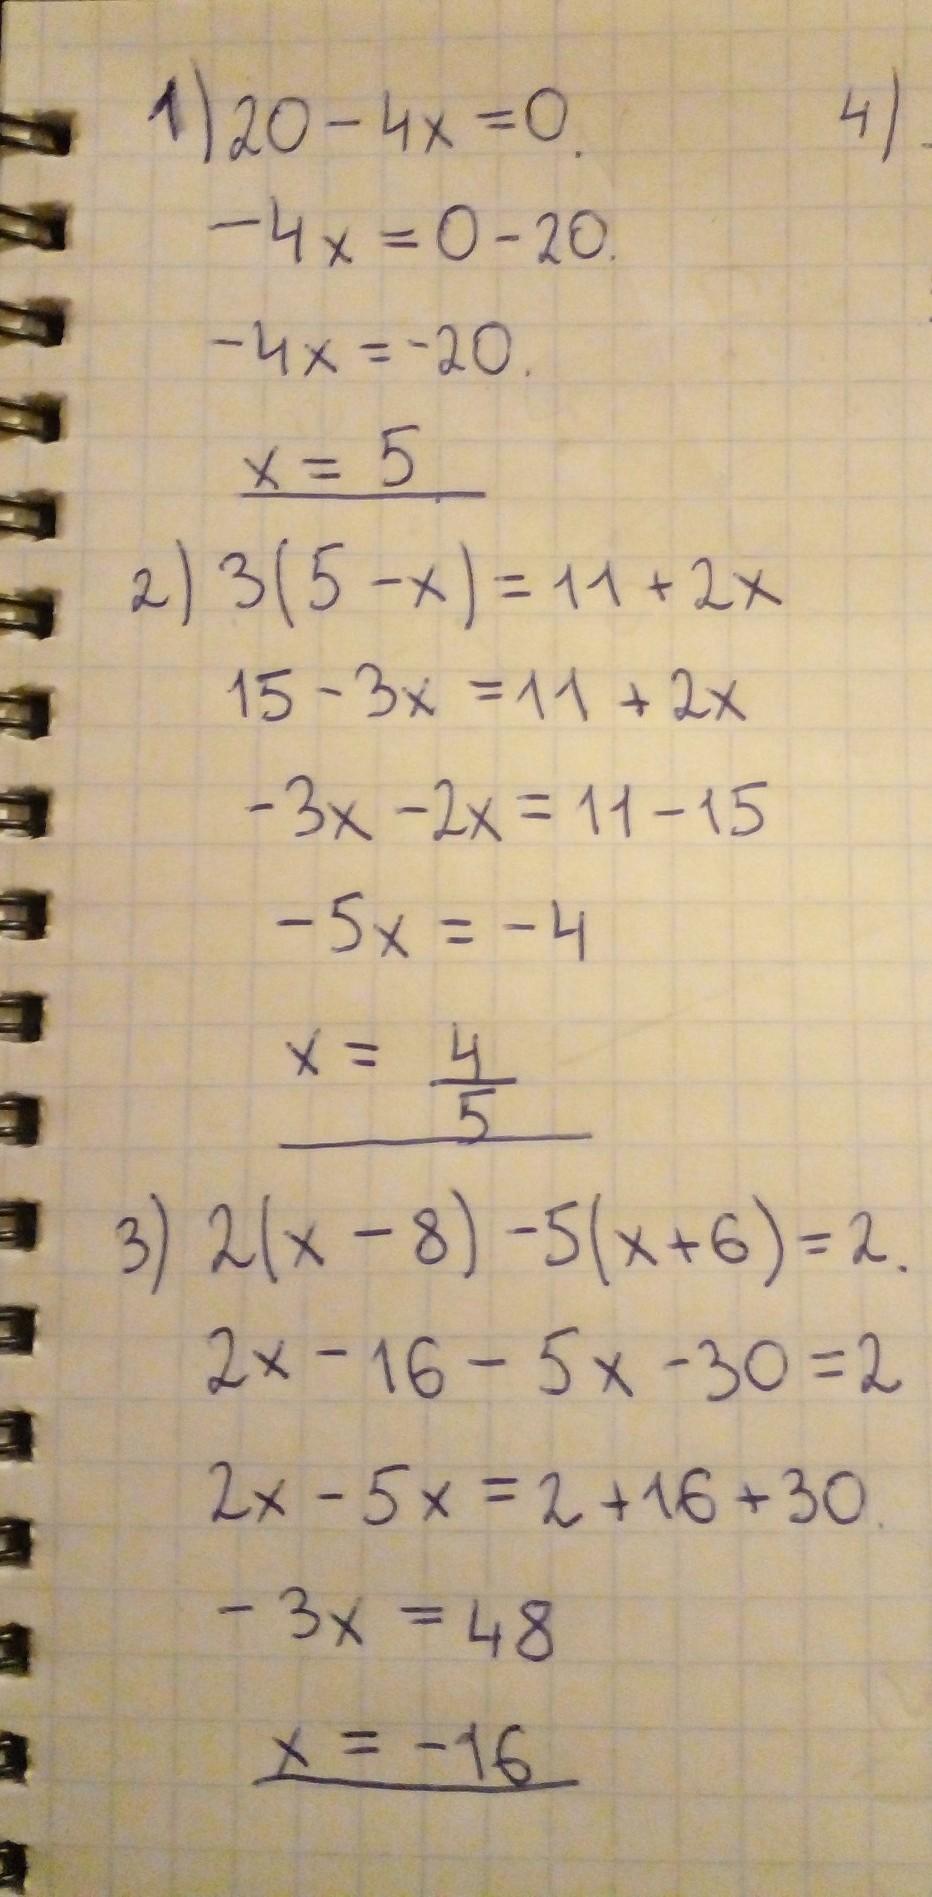 1) 20 - 4x = 0.
-4x = 0 - 20.
-4x = -20.
x = 5
2) 3(5 - x) = 11 + 2x
15 - 3x = 11 + 2x
-3x - 2x = 11 - 15
-5x = -4
x = 4/5
3) 2(x - 8) - 5(x + 6) = 2.
2x - 16 - 5x - 30 = 2
2x - 5x = 2 + 16 + 30.
-3x = 48
x = -16
4)